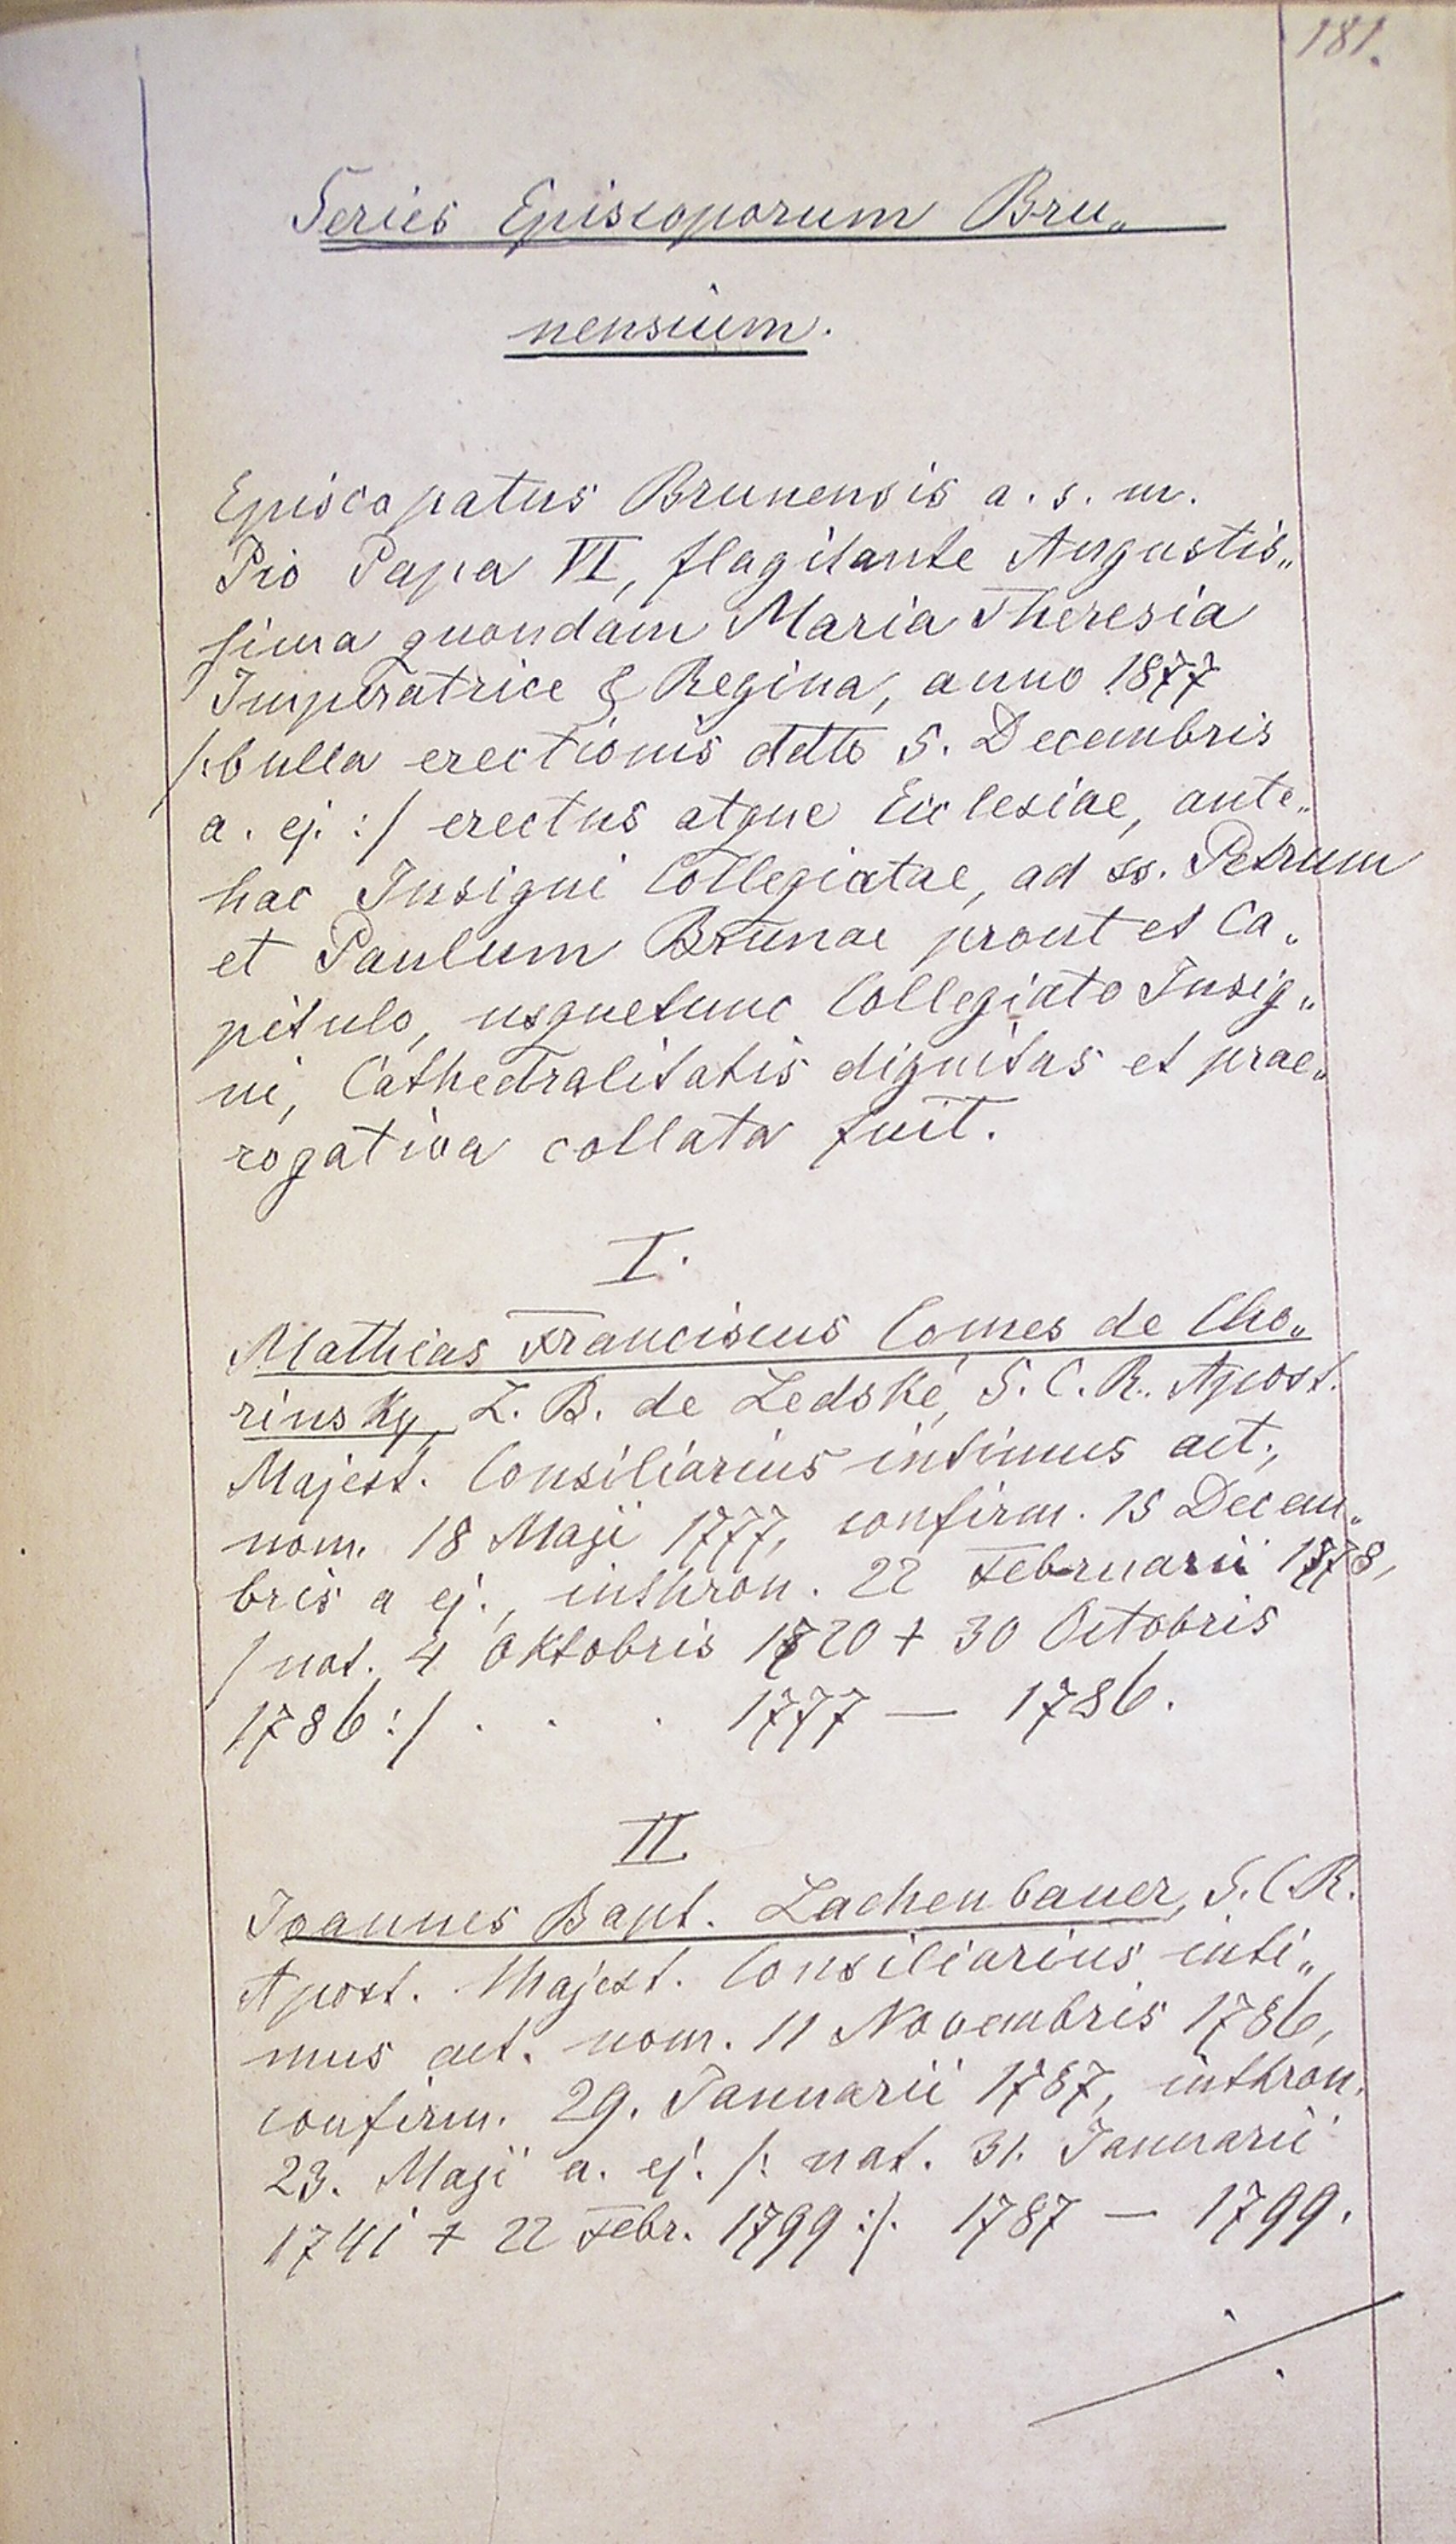 181.
Series Episcoporum Bru„
nensium.
Episcopatus Brunensis a. s. m.
Pio Papa VI, flagitante Augustis„
sima quondam Maria Theresia
Imperatrice & Regina, anno 1877
/:bulla erectionis ddto 5. Decembris
a. ej. :/ erectus atque Ecclesiae, ante„
hac Insigni Collegiatae, ad ss. Petrum
et Paulum Brunae prout et Ca„
pitulo, usquetunc Collegiato Insig„
ni, Cathedralitatis dignitas et prae„
rogativa collata fuit.
I.
Mathias Franciscus Comes de Cho„
rinsky, L. B. de Ledské, S. C. R. Apost.
Majest. Consiliarius intimus act.,
nom. 18 Maji 1777, confirm. 15 Decem„
bris a ej., inthron. 22 Februarii 1778,
/ nat. 4 Oktobris 1720 + 30 Octobris
1786 :/ . . . 1777 — 1786.
II.
Joannes Bapt. Lachenbauer, S. C. R.
Apost. Majest. Consiliarius inti„
mus act. nom. 11 Novembris 1786,
confirm. 29. Januarii 1787, inthron.
23. Maji a. ej. /: nat. 31. Januarii
1741 + 22 Febr. 1799 :/. 1787 — 1799.